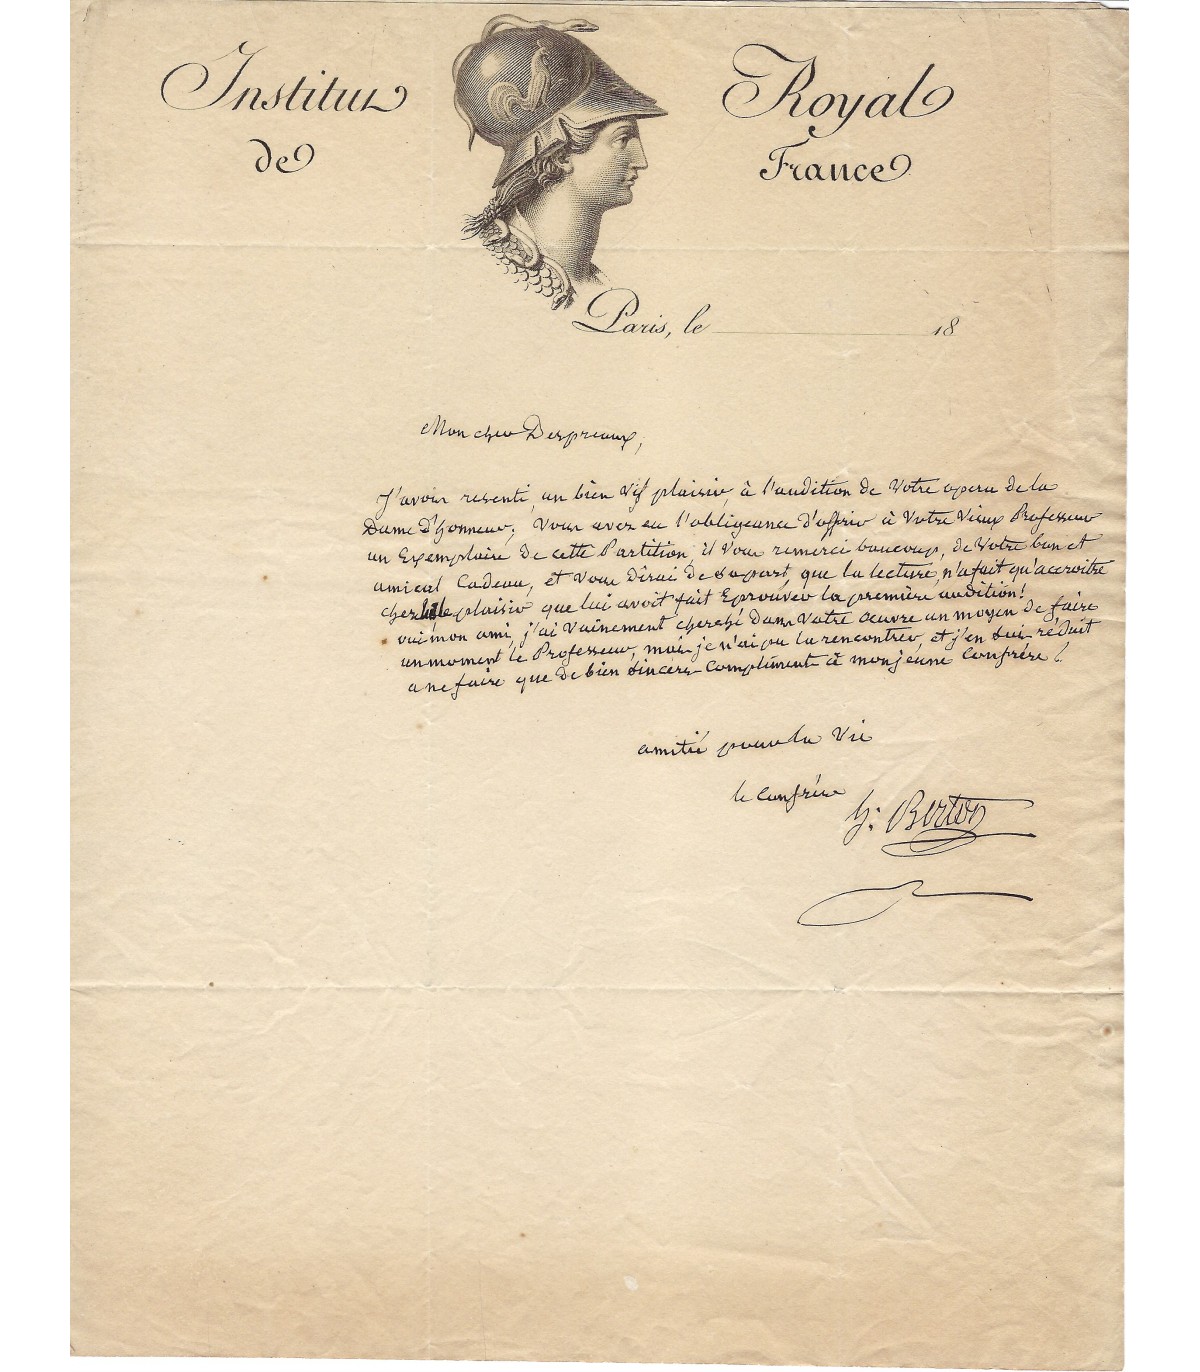 Institut Royal
de France
Paris, le 18
Mon cher Despreaux,
J'avois resenti, un bien vif plaisir, à l'audition de votre opera de la
Dame D'honneur; Vous avez eu l'obligeance d'offrir à Votre Vieux Professeur
un Exemplaire de cette Partition il Vous remerci beaucoup, de Votre bon et
amical Cadeau, et Vous Dirai de sa part, que la lecture, n'a fait qu'accroitre
chez le plaisir que lui avoit fait Eprouver la première audition!
oui mon ami, j'ai Vainement cherché Dans Votre œuvre un moyen de faire
un moment le Professeur, mais je n'ai pu la rencontrer, et j'en suis réduit
a ne faire que de bien sincere Compliments à mon jeune Confrère!
amitié pour la Vie
le confrère
h: Berton